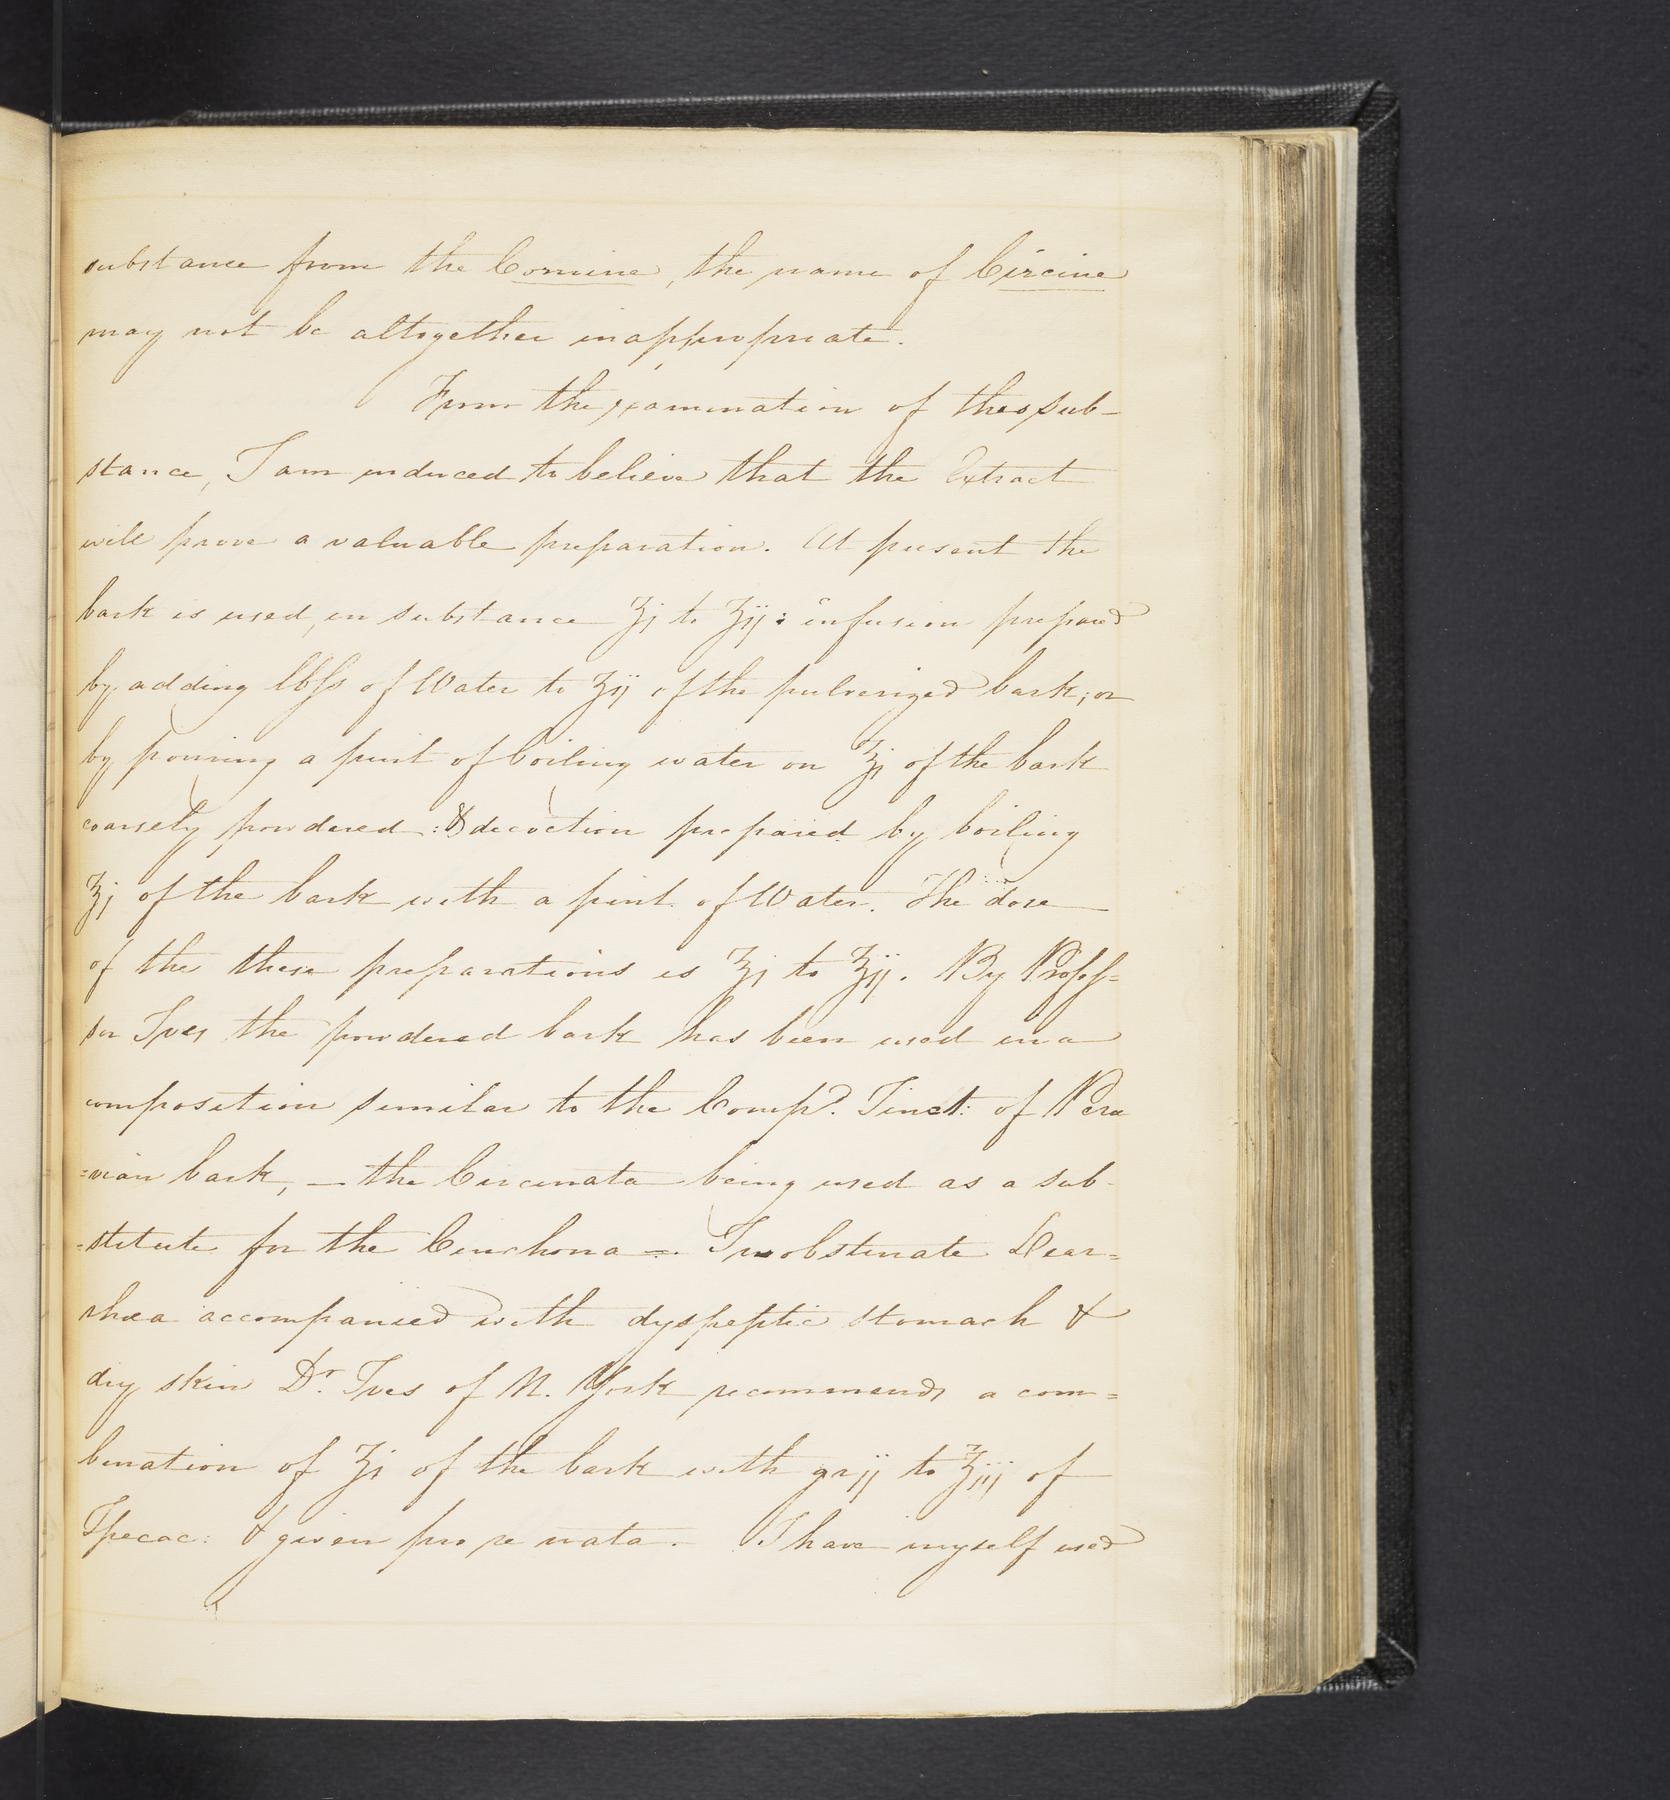 substance from the Cornine, the name of Circine
may not be altogether inappropriate.
From the examination of this sub-
stance, I am induced to believe that the Extract
will prove a valuable preparation. At present the
bark is used, in substance ʒj to ʒij: infusion prepared
by adding lbſs of Water to ʒij of the pulverized bark; or
by pouring a pint of boiling water on ℥j of the bark
coarsely powdered: & decoction prepared by boiling
℥j of the bark with a pint of Water. The dose
of the these preparations is ℥j to ℥ij. By Profes=
sor Ives the powdered bark has been used in a
composition similar to the Compd. Tinct: of Peru
=vian bark, — the Circinata being used as a sub-
=stitute for the Cinchona —. In obstinate Diar=
rhœa accompanied with dyspeptic stomach &
dry skin Dr. Ives of N. York recommends a com=
bination of ʒj of the bark with grij to ℥iij of
Ipecac: & given pro re nata. I have myself used